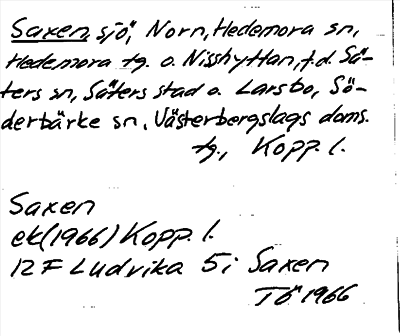 Saxen, sjö, Norn, Hedemora sn,
Hedemora tg. o. Nisshyttan, f.d. Sä-
ters sn, Säters stad o. Larsbo, Sö-
derbärke sn, Västerbergslags doms.
tg., Kopp. l.
Saxen
ek(1966) Kopp. l.
12 F Ludvika 5i Saxen
TÖ 1966